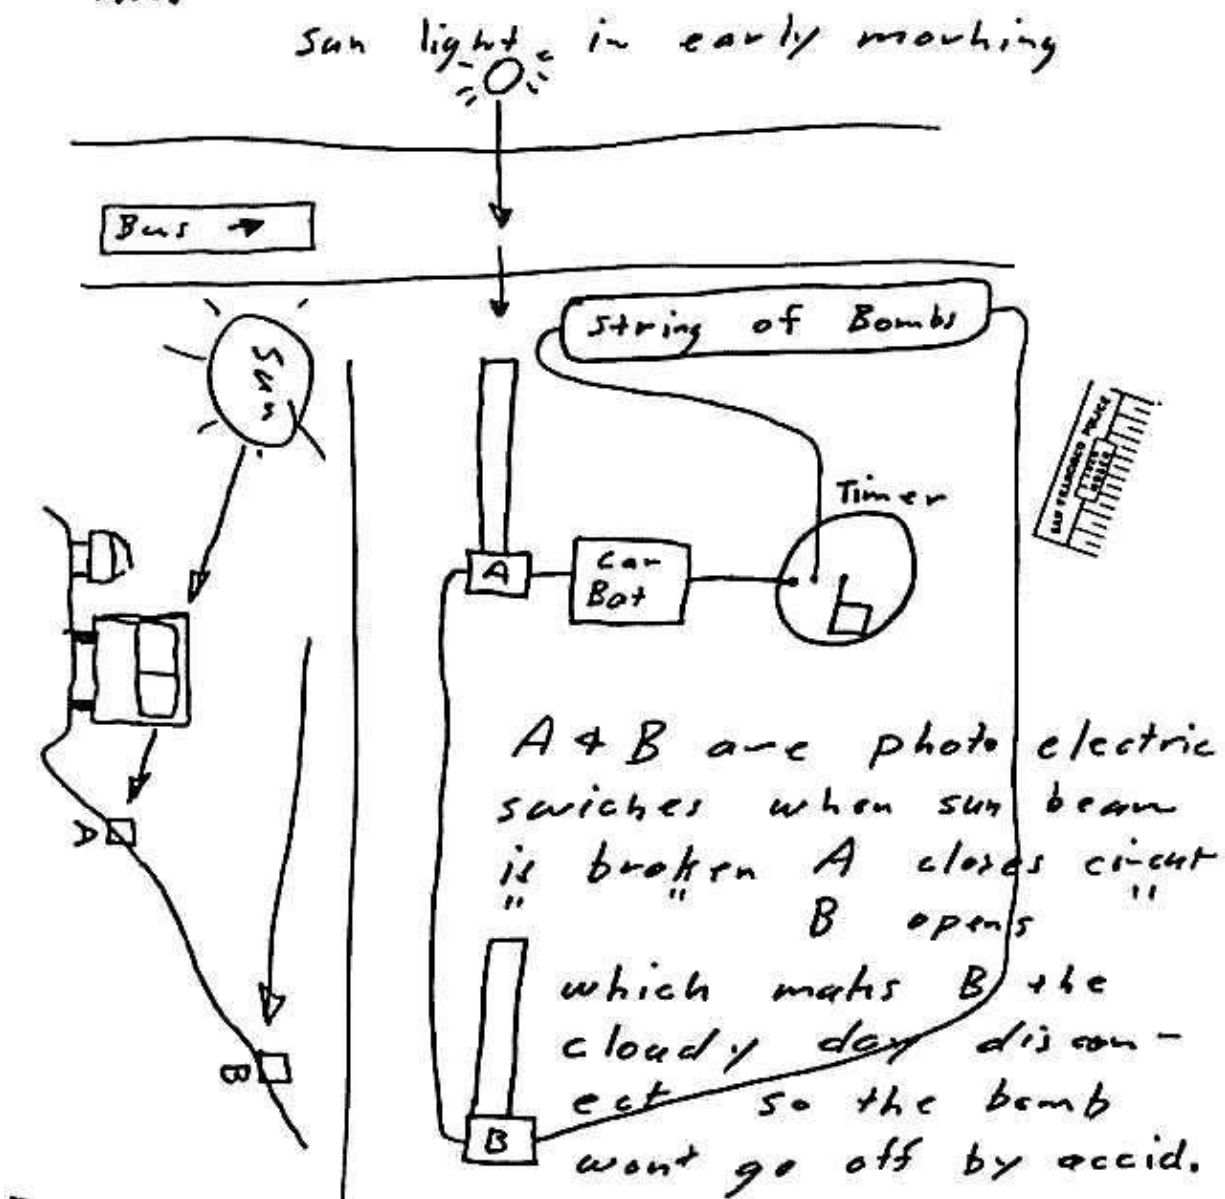 sun light in early morning
Bus →
Sun
String of Bombs
Timer
A
Car
Bat
SAN FRANCISCO POLICE
A & B are photo electric
swiches when sun beam
is broken A closes circut
" " B opens "
A
which maks B the
cloudy day discon-
ect so the bomb
B
B
wont go off by accid.